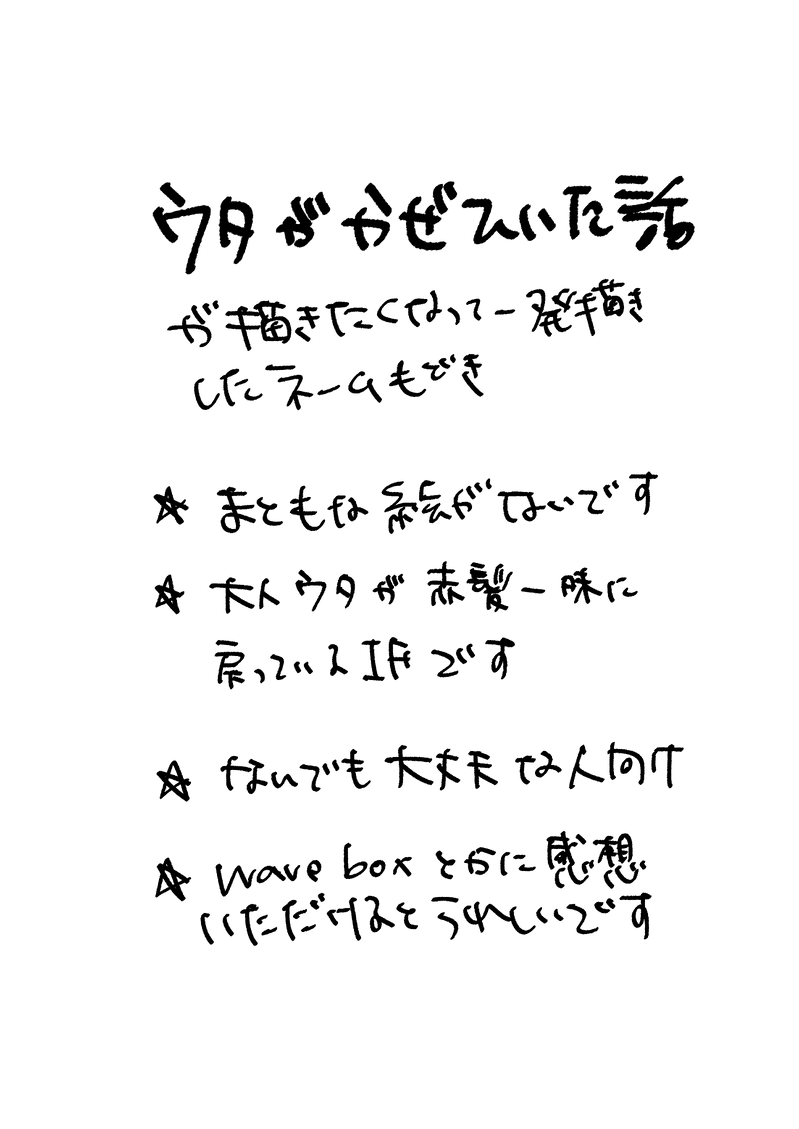 ウタがかぜひいた話
が描きたくなって一発描き
したネームもどき
☆ まともな絵がないです
☆ 大人ウタが赤髪一味に
戻っているIFです
☆ なんでも大丈夫な人向け
☆ wave boxとかに感想
いただけるとうれしいです